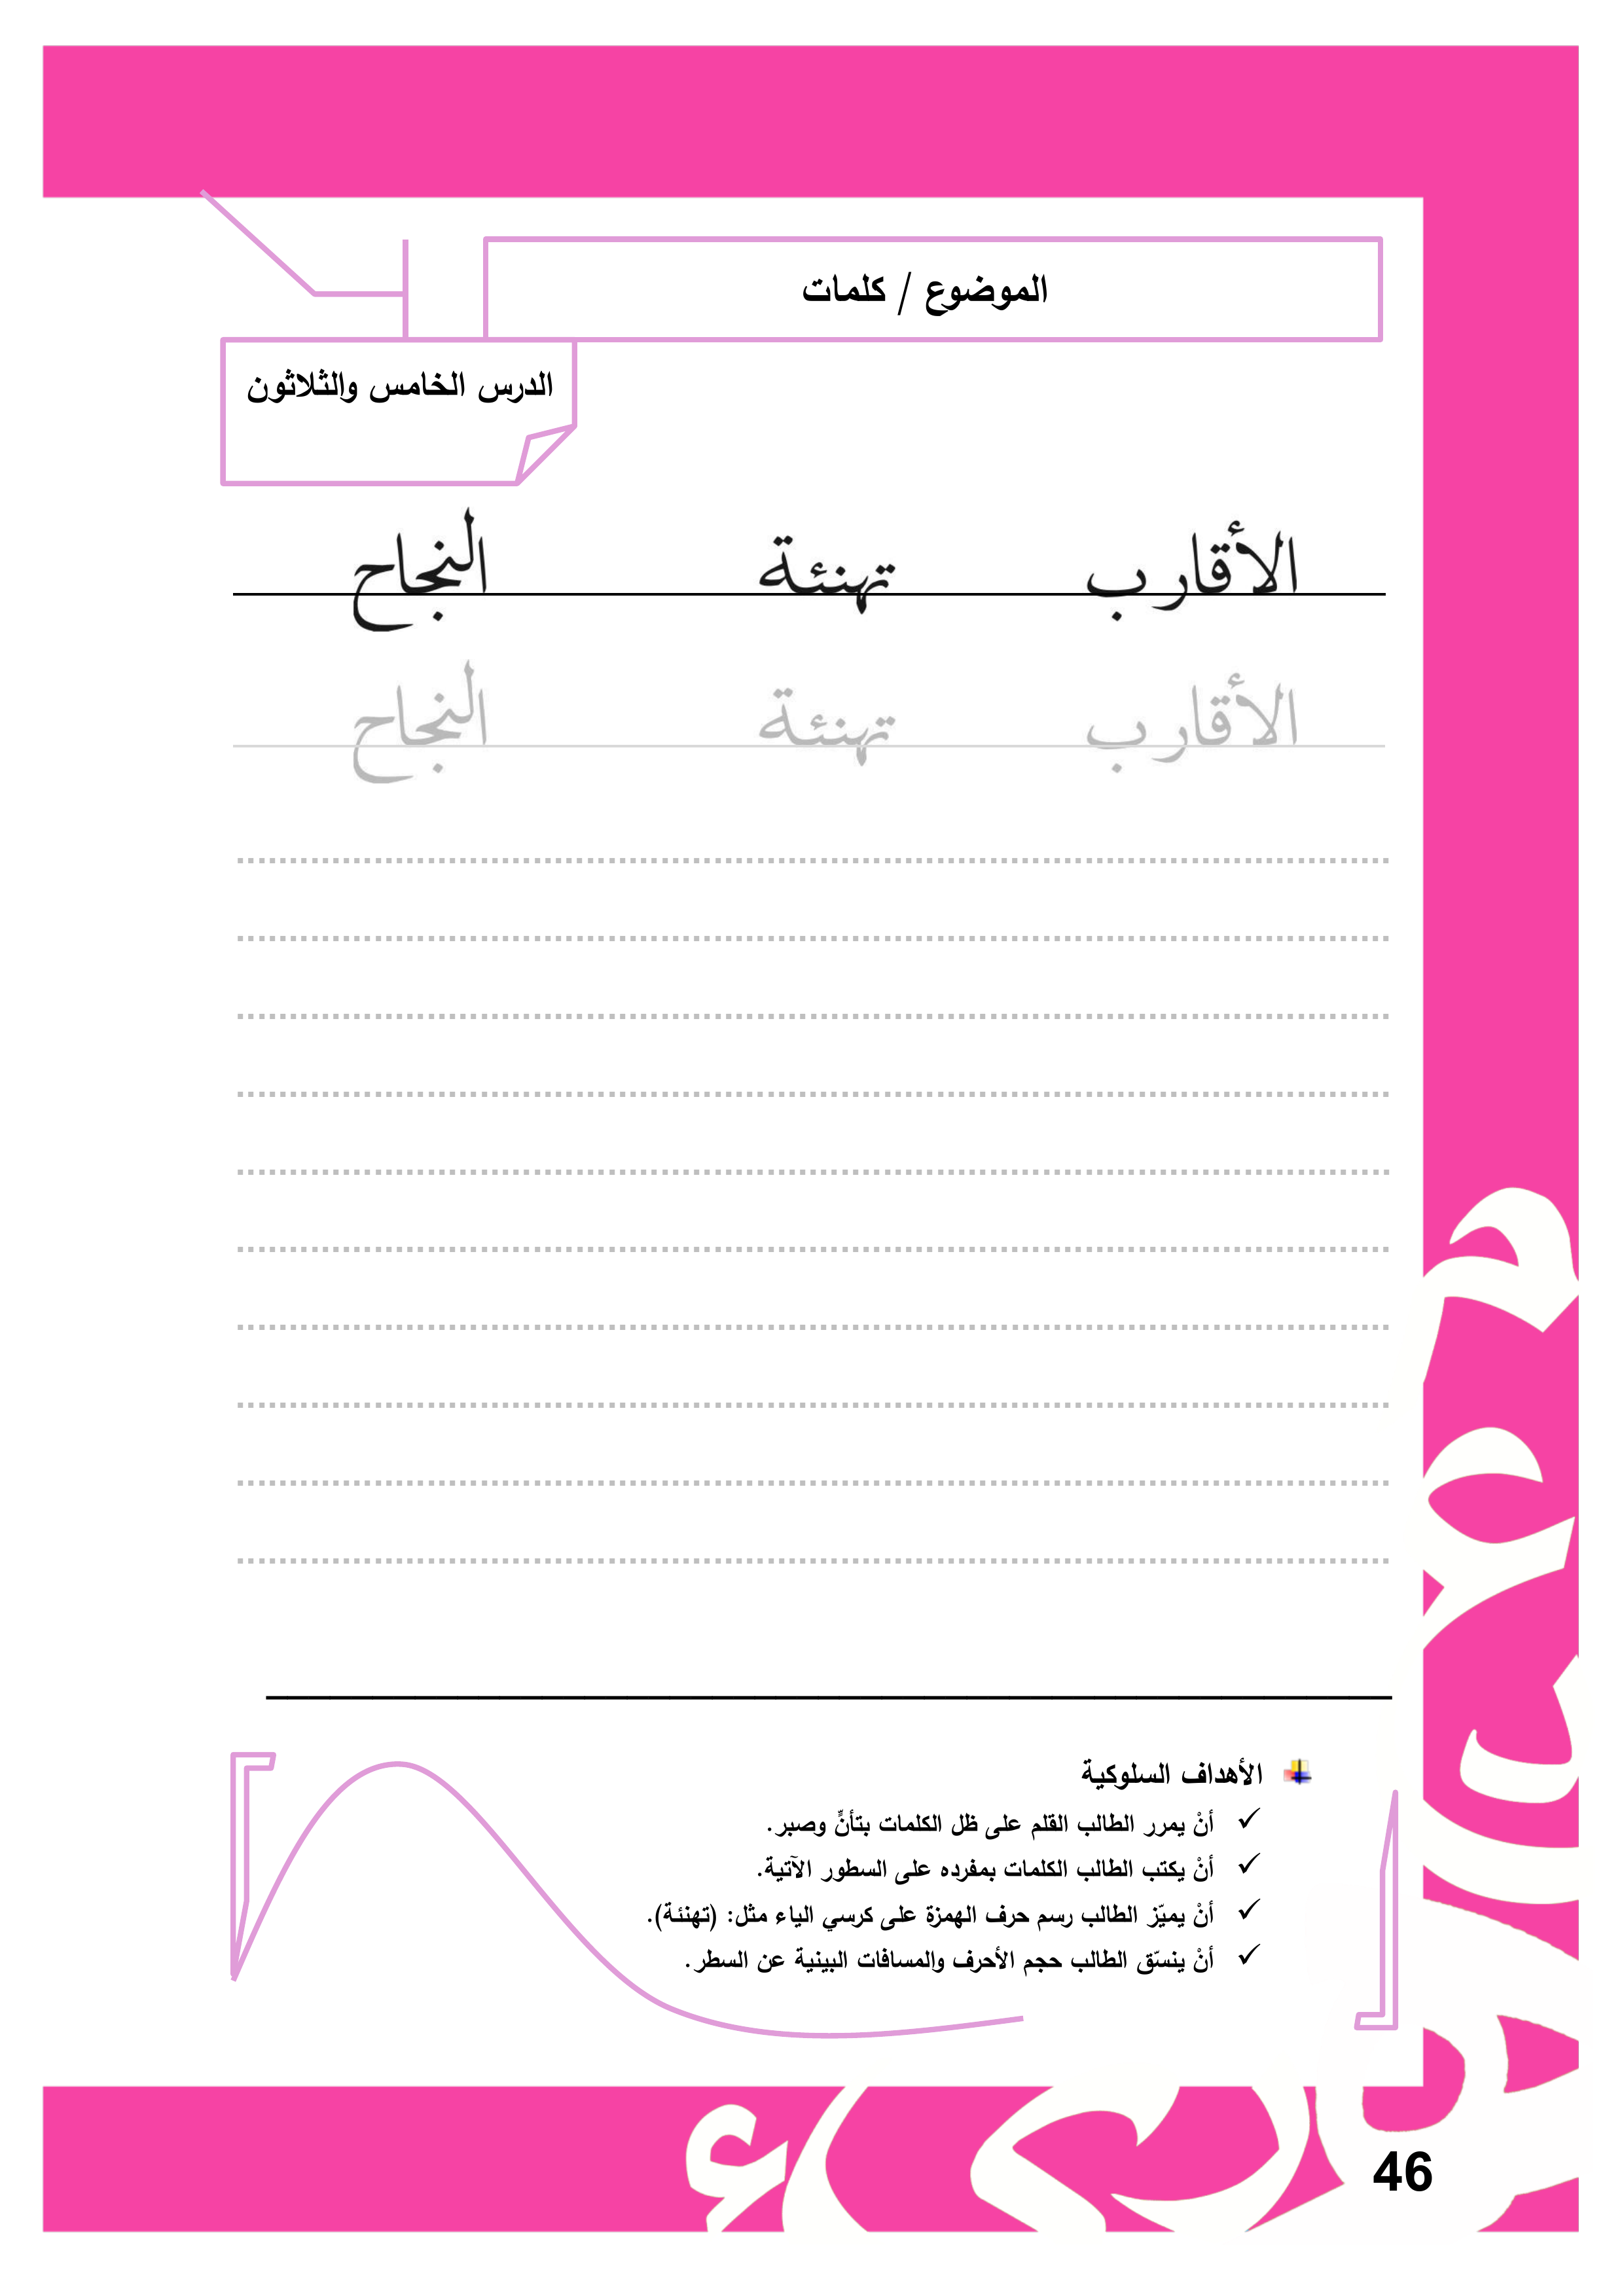 الموضوع / كلمات
الدرس الخامس والثلاثون
الأقارب تهنئة النجاح
الأقارب تهنئة النجاح
الأهداف السلوكية
أنْ يمرر الطالب القلم على ظل الكلمات بتأنٍّ وصبر.
أنْ يكتب الطالب الكلمات بمفرده على السطور الآتية.
أنْ يميّز الطالب رسم حرف الهمزة على كرسي الياء مثل: (تهنئة).
أنْ ينسّق الطالب حجم الأحرف والمسافات البينية عن السطر.
46